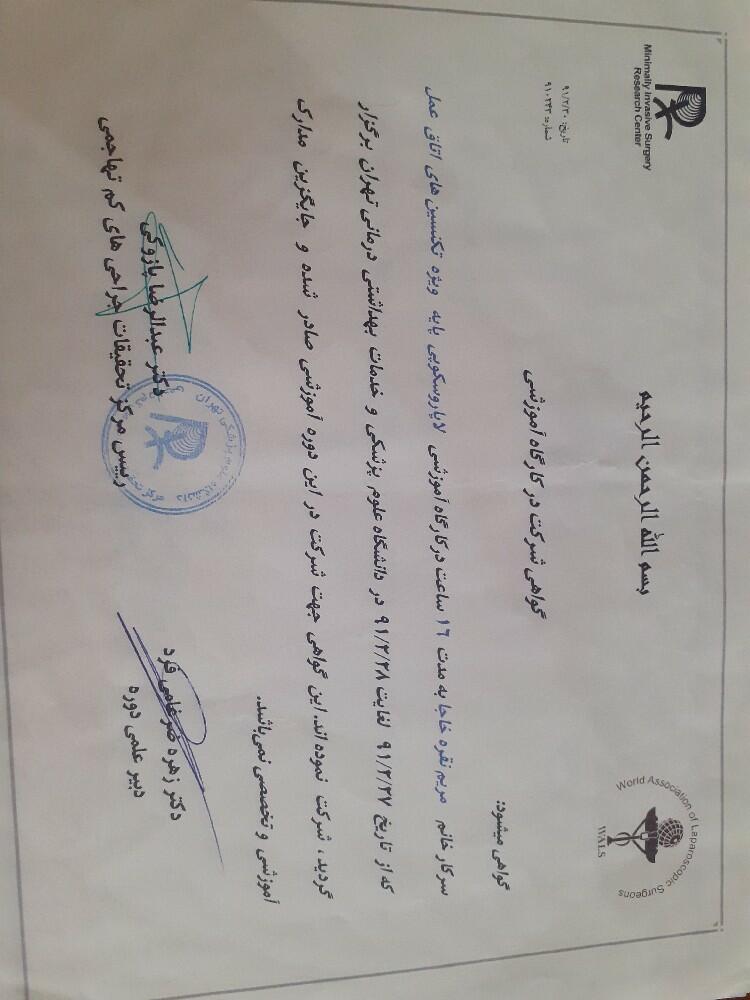 بسم الله الرحمن الرحیم
Minimally Invasive Surgery
Research Center
World Association of Laparoscopic Surgeons
WALS
تاریخ: ۹۱/۲/۳۰
شماره: ۹۱۰۲۴۲
گواهی شرکت در کارگاه آموزشی
گواهی میشود:
سرکار خانم مریم نقره خاجا به مدت ۱۶ ساعت در کارگاه آموزشی لاپاروسکوپی پایه ویژه تکنسین های اتاق عمل
که از تاریخ ۹۱/۲/۲۷ لغایت ۹۱/۲/۲۸ در دانشگاه علوم پزشکی و خدمات بهداشتی درمانی تهران برگزار
گردید، شرکت نموده اند. این گواهی جهت شرکت در این دوره آموزشی صادر شده و جایگزین مدارک
آموزشی و تخصصی نمی‌باشد.
دکتر زهره ضرغامی فرد
دبیر علمی دوره
دکتر عبدالرضا پازوکی
رییس مرکز تحقیقات جراحی های کم تهاجمی
دانشگاه علوم پزشکی تهران